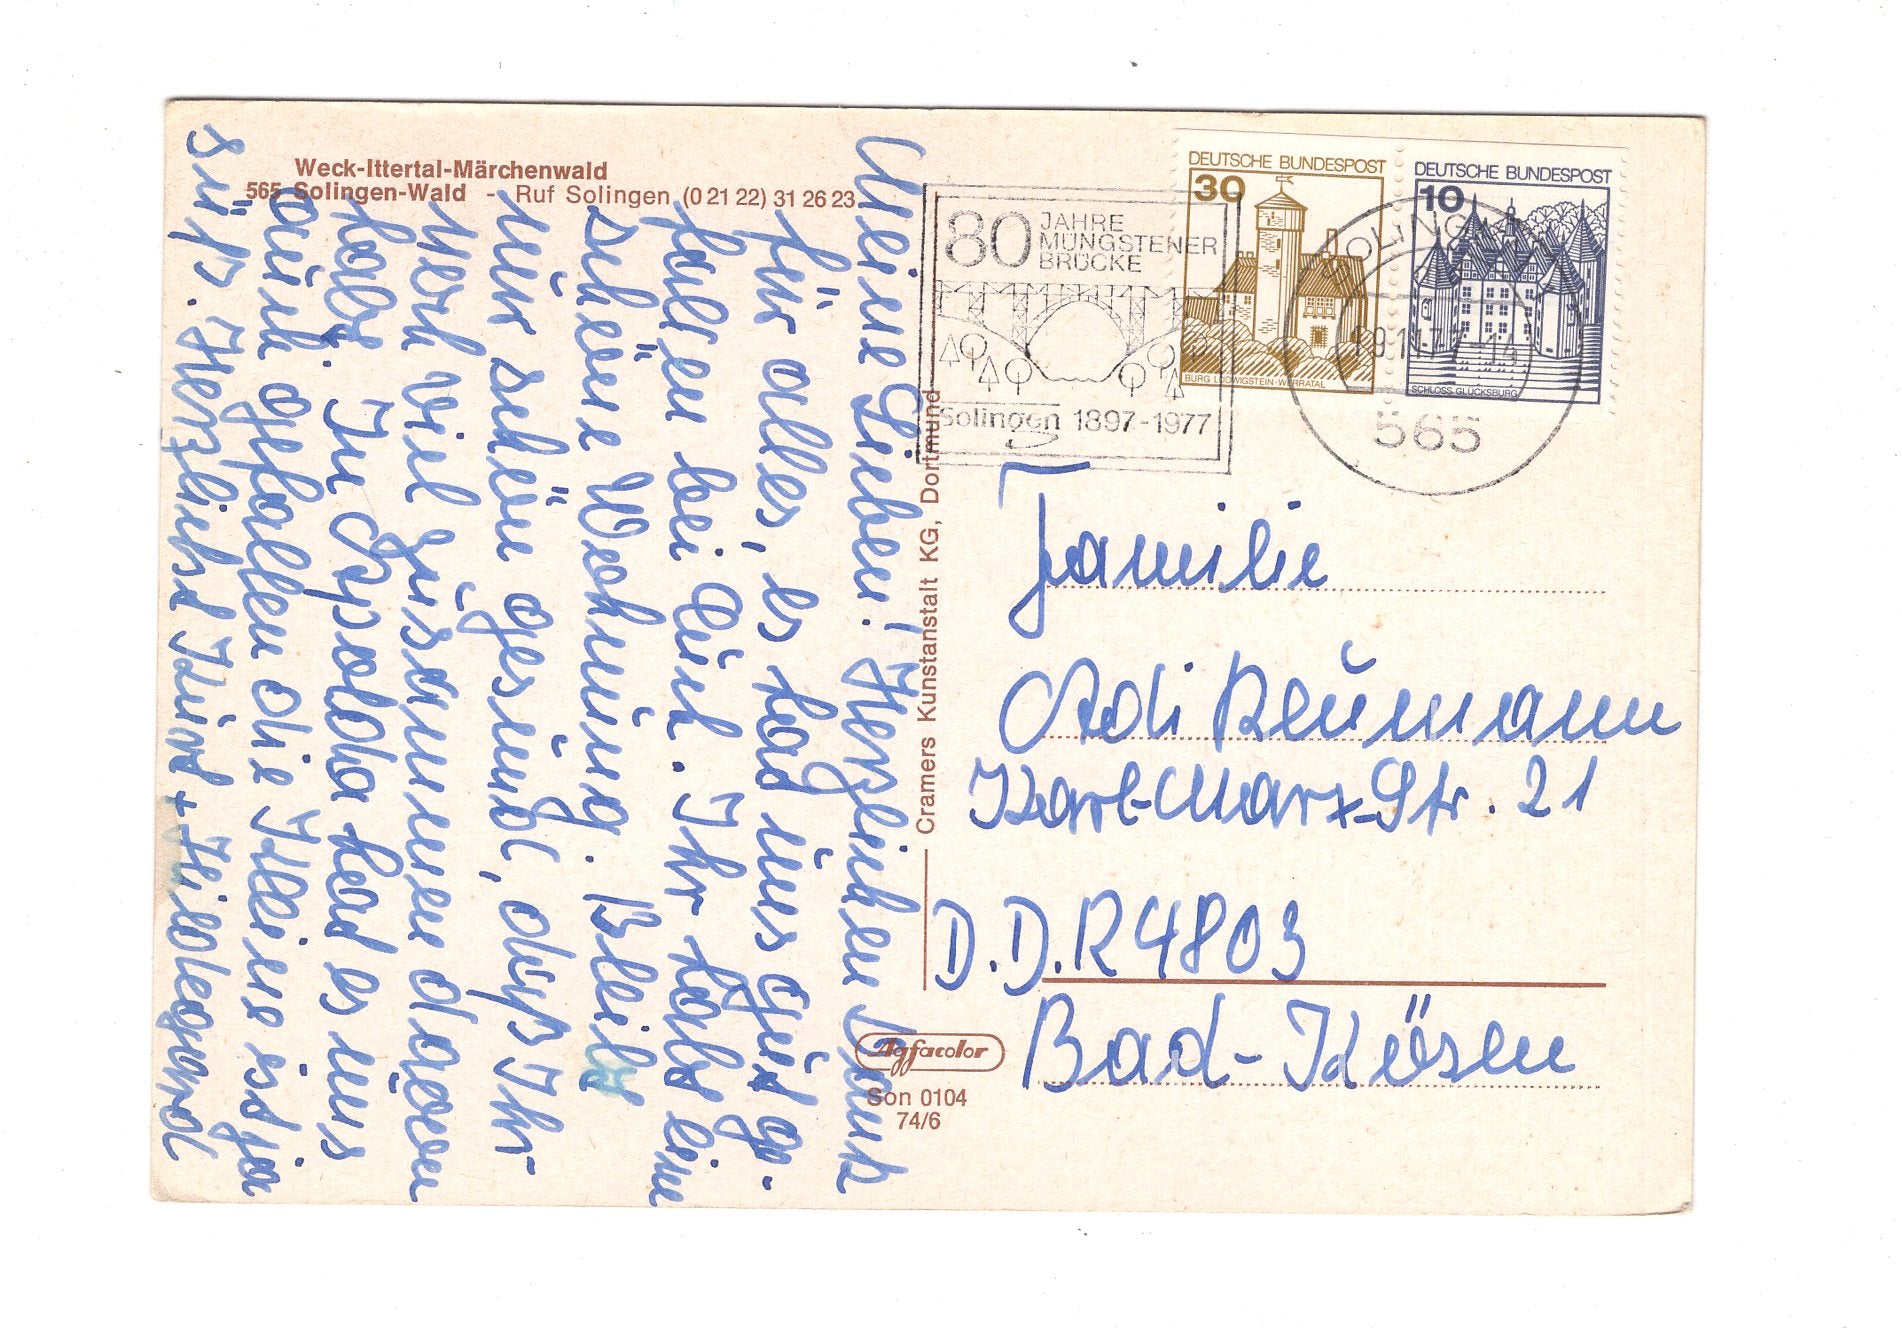 Weck-Ittertal-Märchenwald
565 Solingen-Wald - Ruf Solingen (0 21 22) 31 26 23
Meine Lieben! Herzlichen Dank
für alles, es hat uns gut ge-
fallen bei Euch. Ihr habt eine
schöne Wohnung. Bleibt
nur schön gesund, daß Ihr
noch viel zusammen davon
habt. In Apolda hat es uns
auch gefallen die Kleine ist ja
süß. Herzlichst Kurt + Hildegard
Cramers Kunstanstalt KG, Dortmund
Agfacolor
Son 0104
74/6
80 JAHRE
MÜNGSTENER
BRÜCKE
Solingen 1897-1977
DEUTSCHE BUNDESPOST
30
BURG LUDWIGSTEIN · WERRATAL
DEUTSCHE BUNDESPOST
10
SCHLOSS GLÜCKSBURG
SOLINGEN
565
Familie
Adi Reumann
Karl-Marx-Str. 21
D.D.R 4803
Bad-Kösen